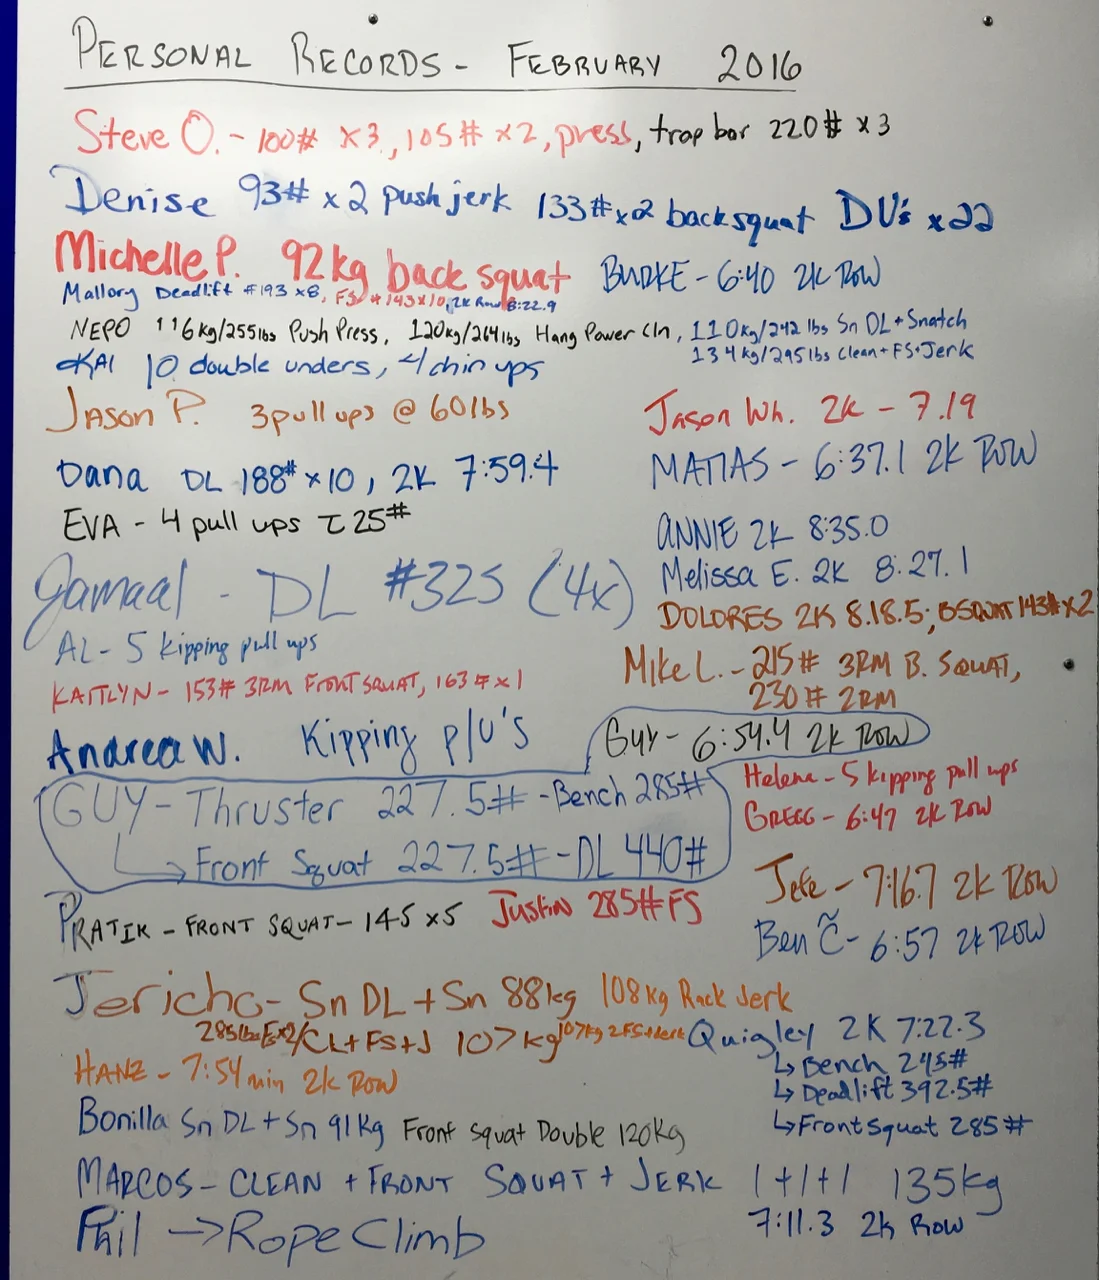 PERSONAL RECORDS - FEBRUARY 2016
Steve O. - 100# x3, 105# x2, press, trap bar 220# x3
Denise 93# x2 push jerk 133# x2 back squat DU's x22
Michelle P. 92kg back squat
BURKE - 6:40 2K ROW
Mallory Deadlift #193 x8, FS #143x10, 2K Row 8:22.9
NEPO 116kg/255lbs Push Press, 120kg/264lbs Hang Power Cln, 110kg/242 lbs Sn DL + Snatch
134kg/295lbs Clean + FS + Jerk
KAI 10 double unders, 4 chin ups
JASON P. 3 pull ups @ 60lbs
Jason Wh. 2K - 7.19
Dana DL 188# x10, 2K 7:59.4
MATIAS - 6:37.1 2K ROW
EVA - 4 pull ups c 25#
ANNIE 2K 8:35.0
Melissa E. 2K 8:27.1
Jamaal - DL #325 (4x)
DOLORES 2K 8.18.5; BSQUAT 143# x2
AL - 5 kipping pull ups
MIKE L. - 215# 3RM B. SQUAT,
230# 2RM
KAITLYN - 153# 3RM FRONT SQUAT, 163# x1
Andrea W. Kipping p/u's
GUY - 6:54.4 2K ROW
Helena - 5 kipping pull ups
GUY - Thruster 227.5# - Bench 285#
GREGG - 6:47 2K ROW
Front Squat 227.5# - DL 440#
Jefe - 7:16.7 2K ROW
PRATIK - FRONT SQUAT - 145 x5
JUSTIN 285# FS
Ben C̃ - 6:57 2K ROW
Jericho - Sn DL + Sn 88kg 108kg Rack Jerk
285lbs Fsx2/CL+FS+J 107kg 107kg 2FS+Jerk
Quigley 2K 7:22.3
Bench 245#
Deadlift 392.5#
Front Squat 285#
HANZ - 7:54 min 2K ROW
Bonilla Sn DL + Sn 91Kg Front Squat Double 120kg
MARCOS - CLEAN + FRONT SQUAT + JERK 1+1+1 135kg
7:11.3 2k Row
Phil → Rope Climb